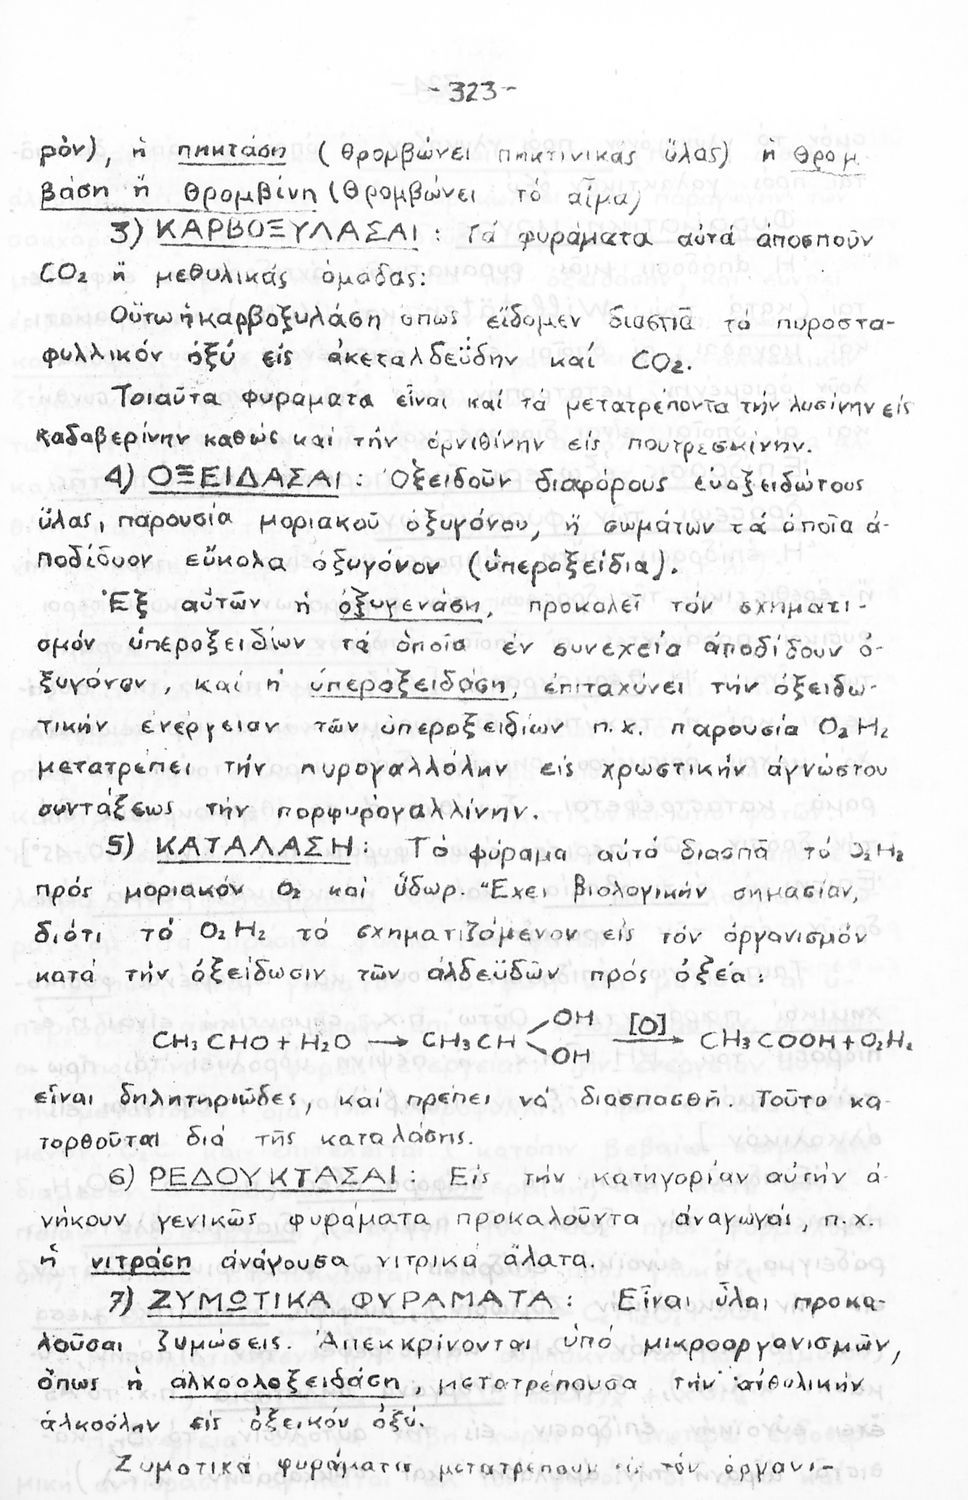 -323-
ρόν), ἡ πηκτάση (θρομβώνει πηκτινικάς ὕλας) ἡ θρομ-
βάση ἤ θρομβίνη (θρομβώνει τό αἷμα)
3) ΚΑΡΒΟΞΥΛΑΣΑΙ: Τά φυράματα αὐτά ἀποσποῦν
CO₂ ἤ μεθυλικάς ὁμάδας:
Οὕτω ἡ καρβοξυλάση ὅπως εἴδομεν διασπᾶ τό πυροστα-
φυλλικόν ὀξύ εἰς ἀκεταλδεΰδην καί CO₂.
Τοιαῦτα φυράματα εἶναι καί τά μετατρέποντα τήν λυσίνην εἰς
καδαβερίνην καθώς καί τήν ὀρνιθίνην εἰς πουτρεσκίνην.
4) ΟΞΕΙΔΑΣΑΙ: Ὀξειδοῦν διαφόρους εὐοξειδώτους
ὕλας, παρουσία μοριακοῦ ὀξυγόνου, ἤ σωμάτων τά ὁποῖα ἀ-
ποδίδυον εὔκολα ὀξυγόνον (ὑπεροξείδια).
Ἐξ αὐτῶν ἡ ὀξυγενάση, προκαλεῖ τόν σχηματι-
σμόν ὑπεροξειδίων τά ὁποῖα ἐν συνεχεία ἀποδίδουν ὀ-
ξυγόνον, καί ἡ ὑπεροξειδάση, ἐπιταχύνει τήν ὀξειδω-
τικήν ἐνέργειαν τῶν ὑπεροξειδίων π.χ. παρουσία O₂H₂
μετατρέπει τήν πυρογαλλόλην εἰς χρωστικήν ἀγνώστου
συντάξεως τήν πορφυρογαλλίνην.
5) ΚΑΤΑΛΑΣΗ: Τό φύραμα αὐτό διασπᾶ τό O₂H₂
πρός μοριακόν O₂ καί ὕδωρ. Ἔχει βιολογικήν σημασίαν,
διότι τό O₂H₂ τό σχηματιζόμενον εἰς τόν ὀργανισμόν
κατά τήν ὀξείδωσιν τῶν ἀλδεϋδῶν πρός ὀξέα:
CH₃CHO + H₂O → CH₃CH OH OH [O] → CH₃COOH + O₂H₂
εἶναι δηλητηριῶδες, καί πρέπει νά διασπασθῆ Τοῦτο κα-
τορθοῦται διά τῆς καταλάσης.
6) ΡΕΔΟΥΚΤΑΣΑΙ: Εἰς τήν κατηγορίαν αὐτήν ἀ-
νήκουν γενικῶς φυράματα προκαλοῦντα ἀναγωγάς, π.χ.
ἡ νιτράση ἀνάγουσα νιτρικά ἅλατα.
7) ΖΥΜΩΤΙΚΑ ΦΥΡΑΜΑΤΑ: Εἶναι ὗλαι προκα-
λοῦσαι ζυμώσεις. Ἀπεκκρίνονται ὑπό μικροοργανισμῶν,
ὅπως ἡ ἀλκοολοξειδάση, μετατρέπουσα τήν αἰθυλικήν
ἀλκοόλην εἰς ὀξεικόν ὀξύ.
Ζυμοτικά φυράματα μετατρέπουν εἰς τόν ὀργανι-